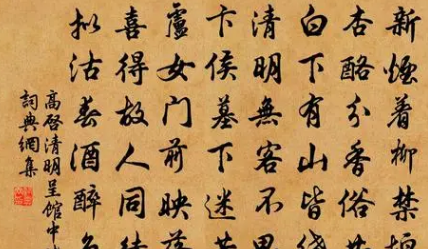 新煙着柳禁垣
杏酪分香俗共
白下有山皆繞
清明無客不思
卞侯墓下迷芳
盧女門前映落
喜得故人同待
拟沽春酒醉京
高啓清明呈館中
詞典網集